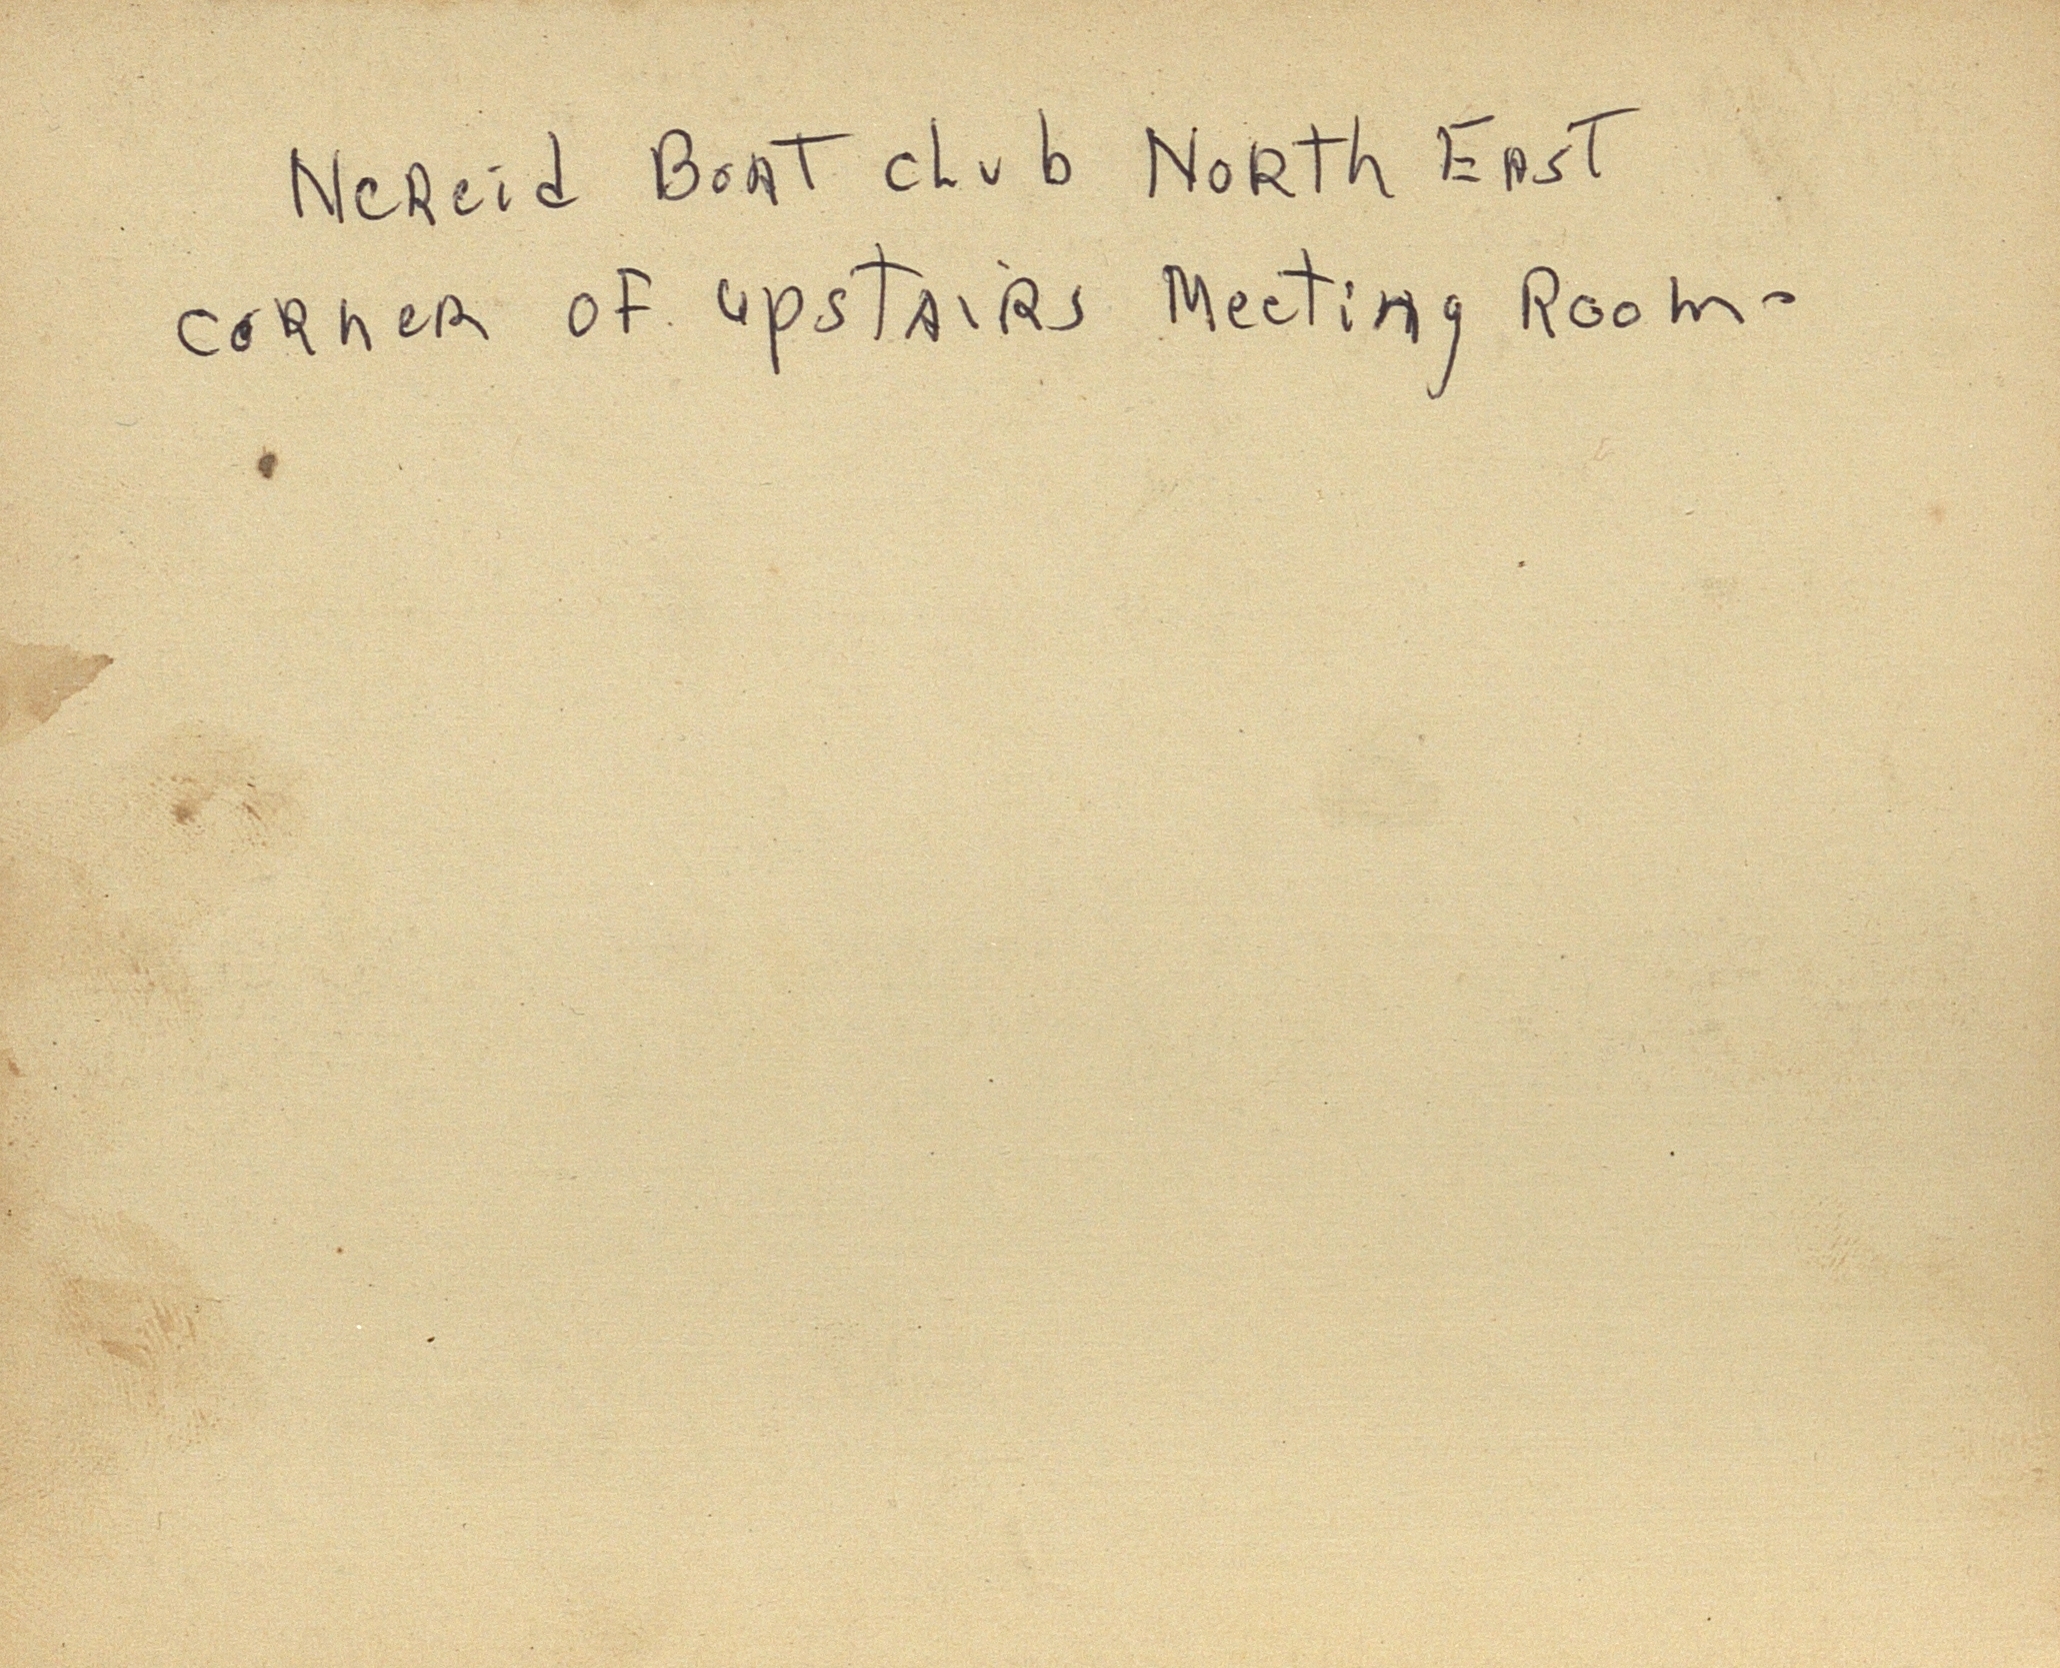 Nereid Boat club North East
corner of upstairs Meeting Room-